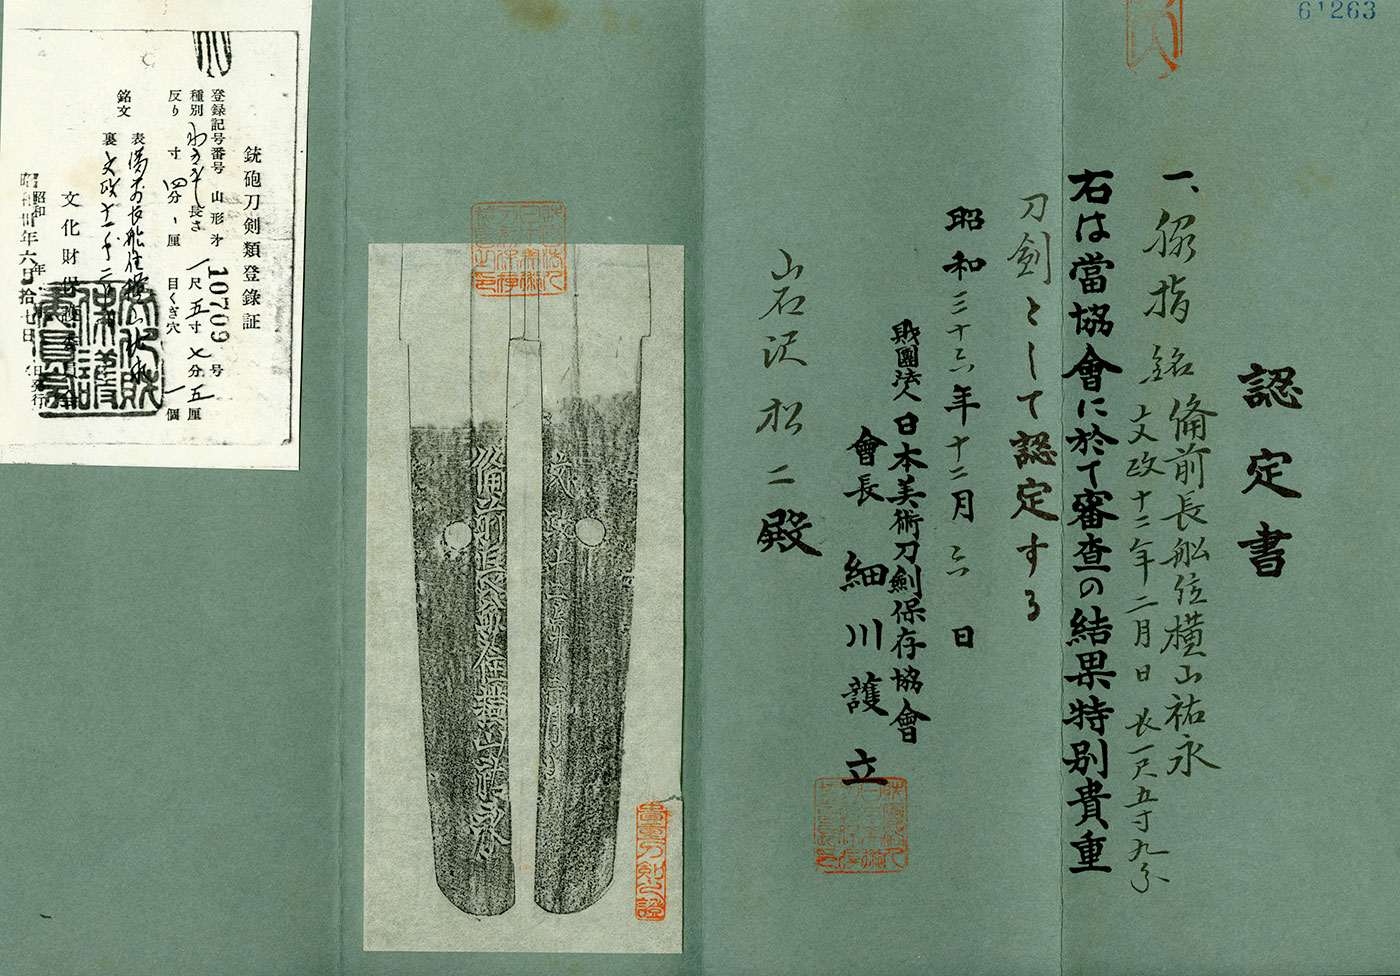 61263
認定書
一、脇指 銘 備前長船住横山祐永
文政十二年二月日 長一尺五寸九分
右は當協會に於て審査の結果特別貴重
刀劍として認定する
昭和三十六年十二月六日
財團法人日本美術刀劍保存協會
會長 細川護立
山石沢松二殿
備前長船住横山祐永
文政十二年二月日
銃砲刀剣類登録証
登録記号番号 山形才 10709 号
種別 わきざし 長さ 一尺五寸七分五厘
反り 寸四分、厘 目くぎ穴 一個
銘文 表 備前長船住横山祐永
裏 文政十二年二
文化財保護委員会
昭和卅年六月拾七日
昭和 年 月 日発行